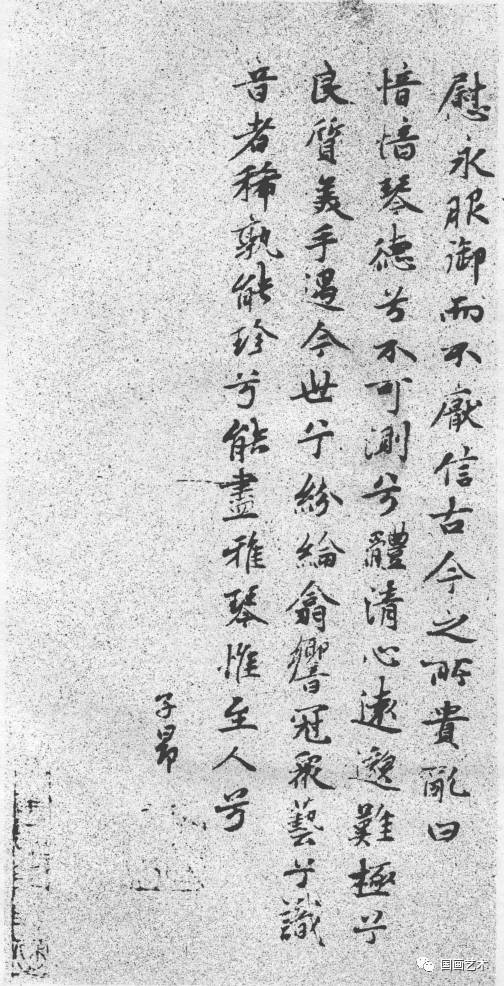 慰永服御而不厭信古今之所貴亂曰
愔愔琴德兮不可測兮體清心遠邈難極兮
良質美手遇今世兮紛綸翕響冠衆藝兮識
音者稀孰能珍兮能盡雅琴惟至人兮
子昂
国画艺术